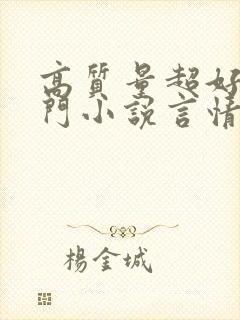 高質量超好
門小說言情
楊金城